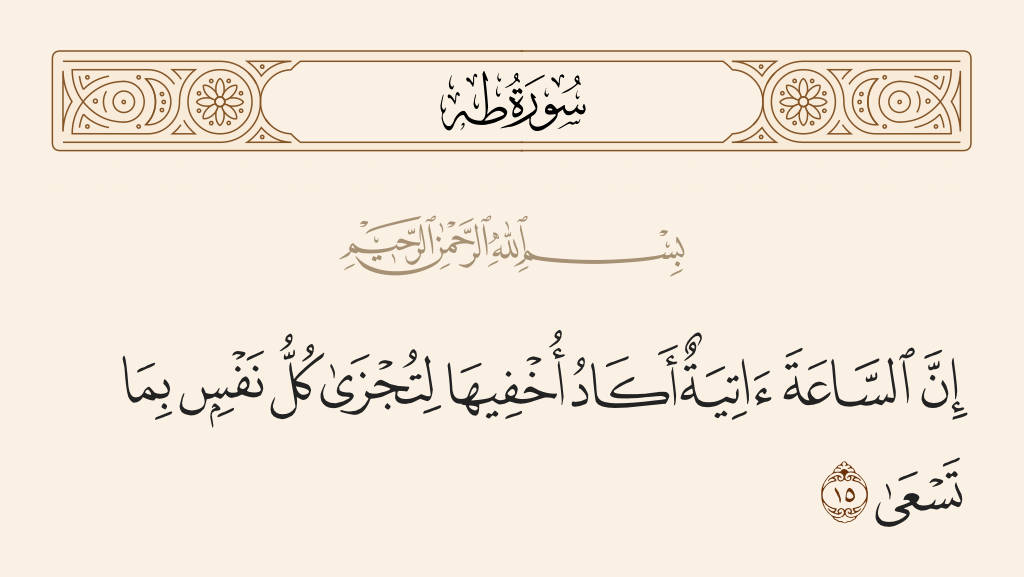 سُورَةُ طه
بِسْمِ ٱللَّهِ ٱلرَّحْمَٰنِ ٱلرَّحِيمِ
إِنَّ ٱلسَّاعَةَ ءَاتِيَةٌ أَكَادُ أُخْفِيهَا لِتُجْزَىٰ كُلُّ نَفْسٍۭ بِمَا
تَسْعَىٰ ١٥